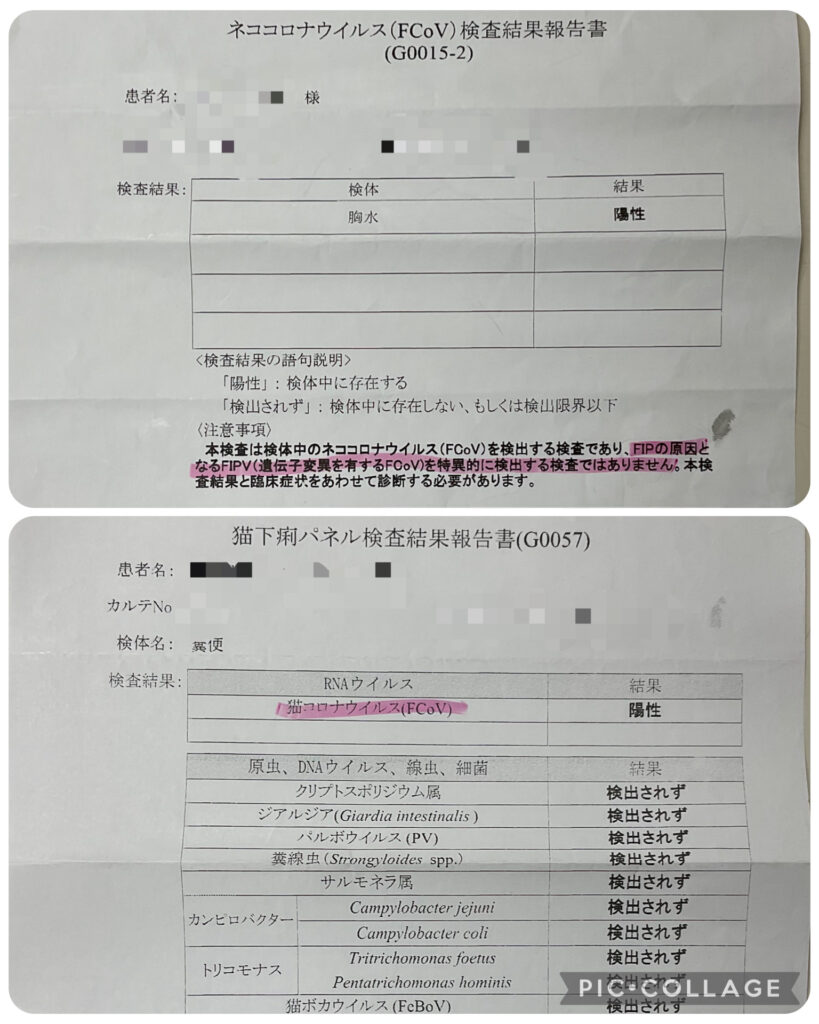 ネココロナウイルス(FCoV)検査結果報告書
(G0015-2)
患者名: 様
検査結果: 検体 結果
胸水 陽性
<検査結果の語句説明>
「陽性」: 検体中に存在する
「検出されず」: 検体中に存在しない、もしくは検出限界以下
〈注意事項〉
本検査は検体中のネココロナウイルス(FCoV)を検出する検査であり、FIPの原因と
なるFIPV(遺伝子変異を有するFCoV)を特異的に検出する検査ではありません。本検
査結果と臨床症状をあわせて診断する必要があります。
猫下痢パネル検査結果報告書(G0057)
患者名:
カルテNo
検体名: 糞便
検査結果: RNAウイルス 結果
猫コロナウイルス(FCoV) 陽性
原虫、DNAウイルス、線虫、細菌 結果
クリプトスポリジウム属 検出されず
ジアルジア(Giardia intestinalis) 検出されず
パルボウイルス(PV) 検出されず
糞線虫(Strongyloides spp.) 検出されず
サルモネラ属 検出されず
カンピロバクター Campylobacter jejuni 検出されず
Campylobacter coli 検出されず
トリコモナス Tritrichomonas foetus 検出されず
Pentatrichomonas hominis 検出されず
猫ボカウイルス(FeBoV) 検出されず
PIC•COLLAGE